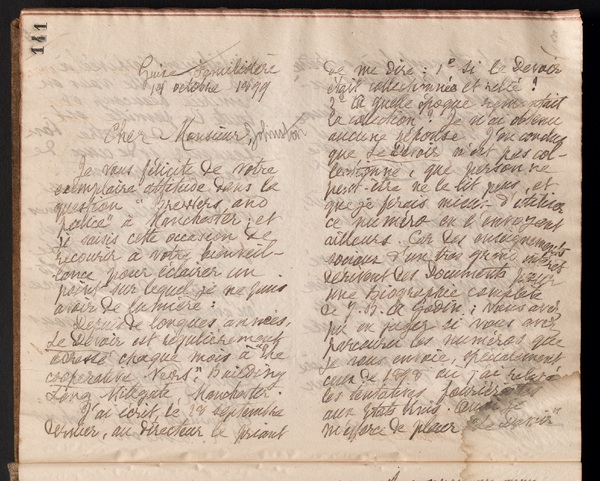 141
Guise Familistère
18 octobre 1899
Cher Monsieur Johnston
Je vous félicite de votre
exemplaire attitude dans la
question "Brewers, and
police" à Manchester; et
je saisis cette occasion de
recourir à votre bienveil-
lance pour éclairer un
point sur lequel je ne puis
avoir de lumière:
Depuis de longues années,
Le Devoir est régulièrement
adressé chaque mois à "The
cooperative News", Building
Long Millgate, Manchester.
J'ai écrit le 18 septembre
dernier, au directeur le priant
de me dire: 1º si le Devoir
était collectionné et relié?
2º à quelle époque remontait
la collection? Je n'ai obtenu
aucune réponse. J'en conclus
que Le Devoir n'est pas col-
lectionné, que personne
peut-être ne le lit plus, et
que je ferais mieux d'utiliser
ce numéro en l'envoyant
ailleurs. Car des enseignements
sociaux d'un très grand intérêt
dérivent des Documents pour
une Biographie complète
de J. Bte A. Godin; vous avez
pu en juger si vous avez
parcouru les numéros que
je vous envoie, spécialement
ceux de 1898 où j'ai relaté
les tentatives
aux Etats Unis.
m'efforce de placer "Le Devoir"